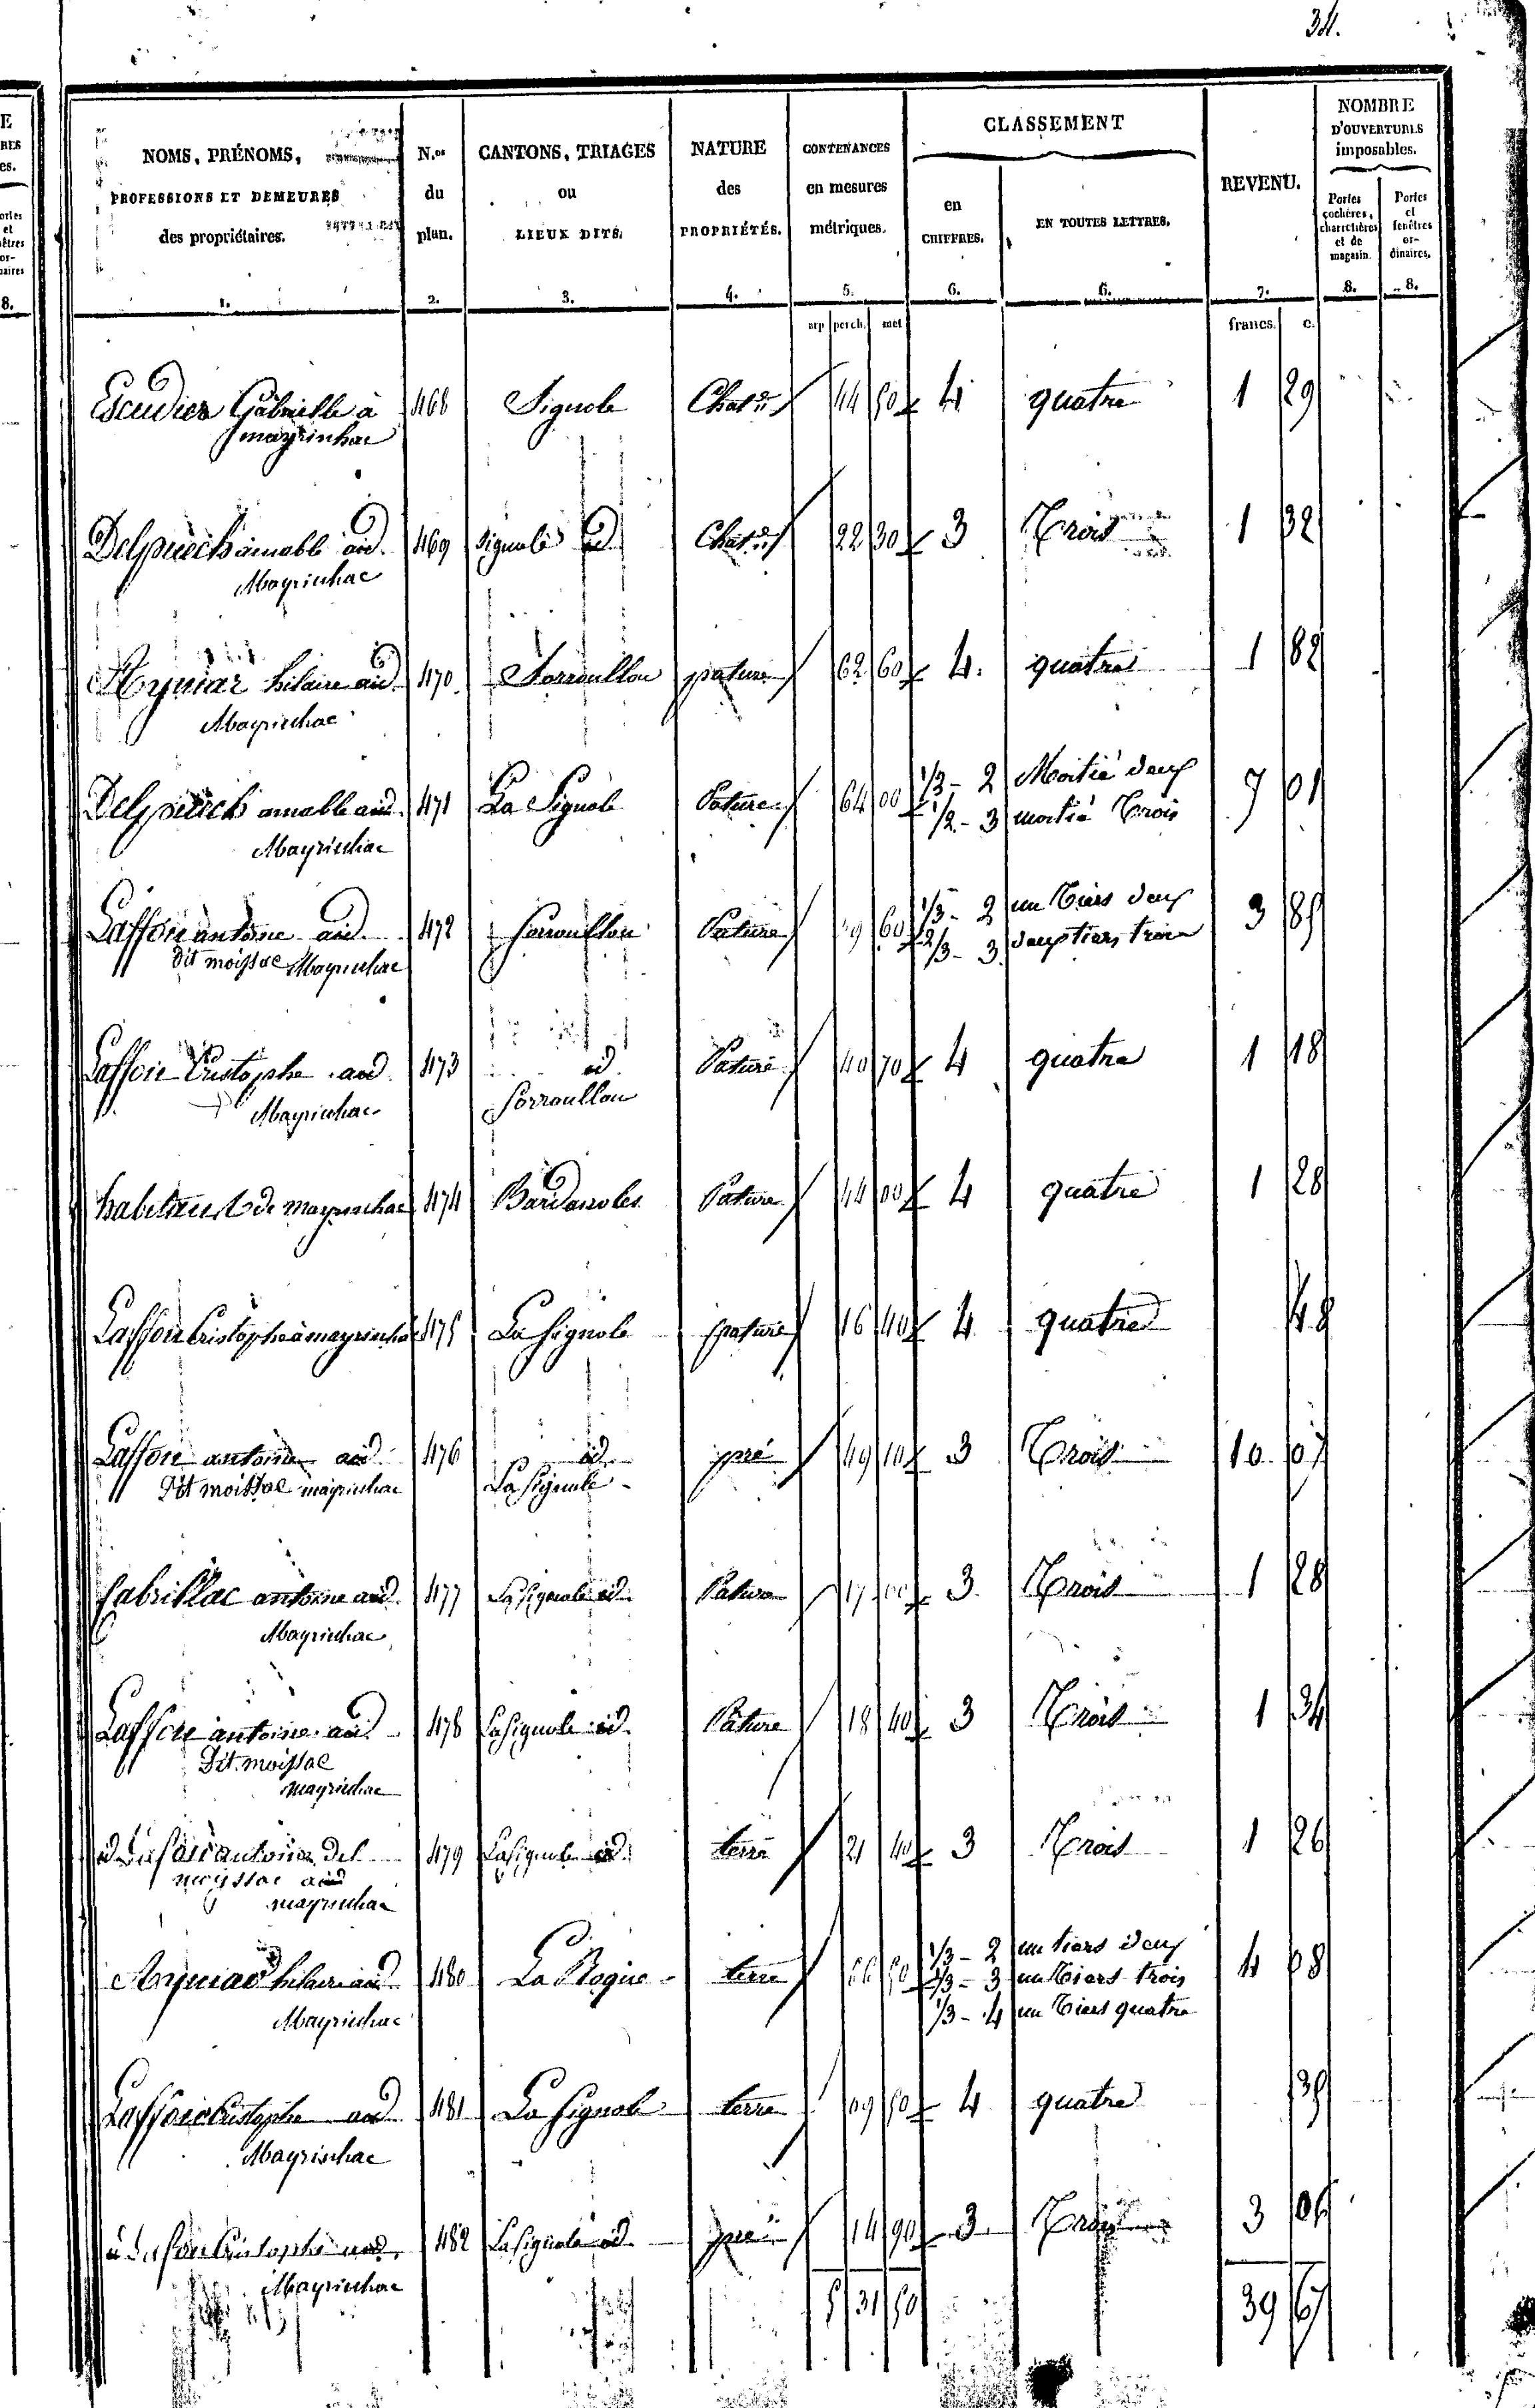 34.
NOMS, PRÉNOMS,
PROFESSIONS ET DEMEURES
des propriétaires.
1.
N.os
du
plan.
2.
CANTONS, TRIAGES
ou
LIEUX DITS.
3.
NATURE
des
PROPRIÉTÉS.
4.
CONTENANCES
en mesures
métriques.
5.
CLASSEMENT
en
CHIFFRES.
6.
EN TOUTES LETTRES.
6.
REVENU.
7.
NOMBRE
D'OUVERTURES
imposables.
Portes
cochères,
charretières
et de
magasin.
8.
Portes
et
fenêtres
or-
dinaires.
8.
arp perch. met francs. c.
Escudier Gabrielle à 468 Signole 44 50 4 quatre 1 29
mayrinhac
Delpuech amable aid. 469 Signole id 22 30 3 Trois 1 32
Mayrinhac
hilaire aid 470 Sorroullou pature 62 60 4. quatre 1 82
Mayrinhac
Delpuech amable aid. 471 La Signole Pature 64 00 1/2 - 2 Moitié deux 7 01
1/2 - 3 moitié Trois
Mayrinhac
Laffon antoine aid 472 Sorroullou Pature 60 1/3 - 2 un tiers deux 3 85
2/3 - 3 deux tiers trois
dit moissac Mayrinhac
Laffon Cristophe aid 473 id. Pature 40 70 4 quatre 1 18
Mayrinhac Sorroullou
habitants de mayrinhac 474 Bardassoles Pature 44 00 4 quatre 1 28
Laffon Cristophe à mayrinhac 475 La Signole pature 16 40 4 quatre 48
Laffon antoine aid 476 id. pré 49 10 3 Trois 10 07
Dit moissac mayrinhac La Signole
Cabrillac antoine aid. 477 La Signole id. Pature 17 00 3 Trois 1 28
Mayrinhac
Laffon antoine aid 478 La Signole id. Pature 18 40 3 Trois 1 34
Dit moissac
mayrinhac
Laffon antoine Del 479 La Signole id. terre 21 40 3 Trois 1 26
moissac aid
mayrinhac
hilaire aid 480 terre 1/3 - 2 un tiers deux 4 08
1/3 - 3 un tiers trois
1/3 - 4 un tiers quatre
Mayrinhac
Laffon Cristophe aid 481 La Signole terre 09 50 4 quatre 39
Mayrinhac
Laffon Cristophe aid 482 La Signole id. pré 14 90 3 Trois 3 06
Mayrinhac
5 31 50 39 67